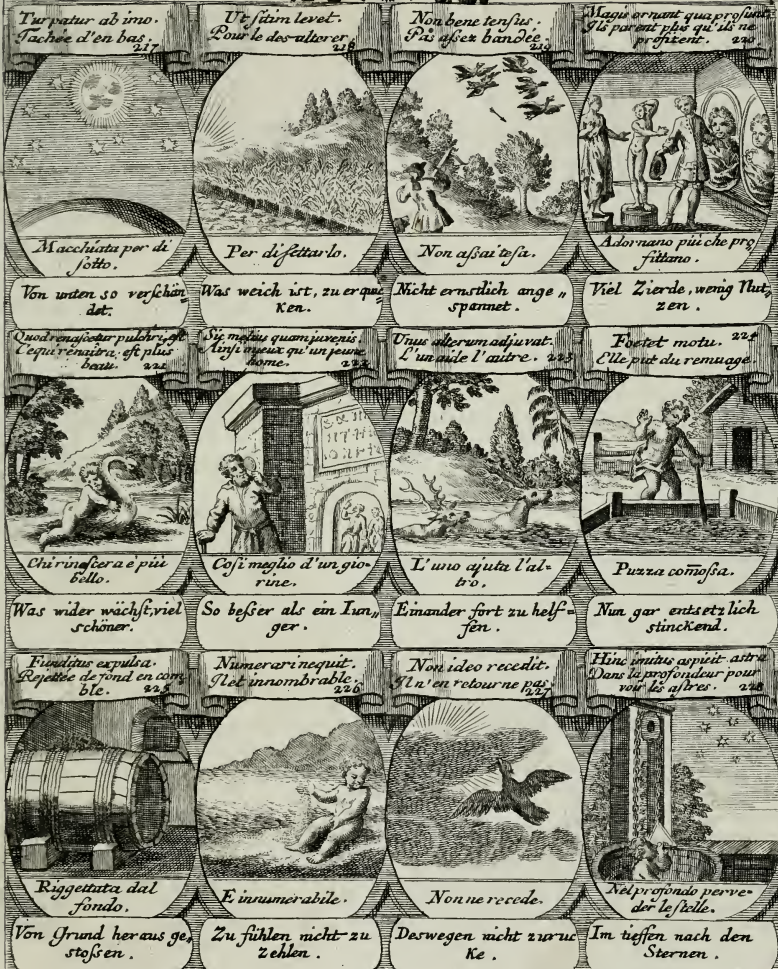 Turpatur ab imo.
Tachée d'en bas.
217
Macchiata per di
sotto.
Von unten so verschän
det.
Ut sitim levet.
Pour le desalterer
218
Per disettarlo.
Was weich ist, zu erquic
ken.
Non bene tensus.
Pas aßez bandée.
219
Non aßai tesa.
Nicht ernstlich ange„
spannet.
Magis ornant qua prosunt
Ils parent plus qu'ils ne
profitent. 220
Adornano più che pro
fittano.
Viel Zierde, wenig Nut
zen.
Quod renascetur pulchri, est
Ce qui renaitra, est plus
beau. 221
Chi rinascera è più
bello.
Was wider wächst, viel
schöner.
Sic melius quam juvenis.
Ainsi mieux qu'un jeune
home. 222
Cosi meglio d'un gio-
vine.
So beßer als ein Iun„
ger.
Unus alterum adjuvat.
L'un aide l'autre. 223
L'uno ajuta l'al-
tro.
Einander fort zu helf=
fen.
Foetet motu. 224
Elle put du remuage
Puzza com̄oßa.
Nun gar entsetzlich
stinckend.
Funditus expulsa.
Rejettée de fond en com
ble. 225
Riggettata dal
fondo.
Von Grund heraus ge„
stoßen.
Numerari nequit.
Il et innombrable.
226
E innumerabile.
Zu fühlen nicht zu
zehlen.
Non ideo recedit.
Il n'en retourne pas
227
Non ne recede.
Deswegen nicht zuruc
ke.
Hinc imitus aspicit astra
Dans la profondeur pour
voir les astres. 228
Nel profondo perve-
der le stelle.
Im tieffen nach den
Sternen.